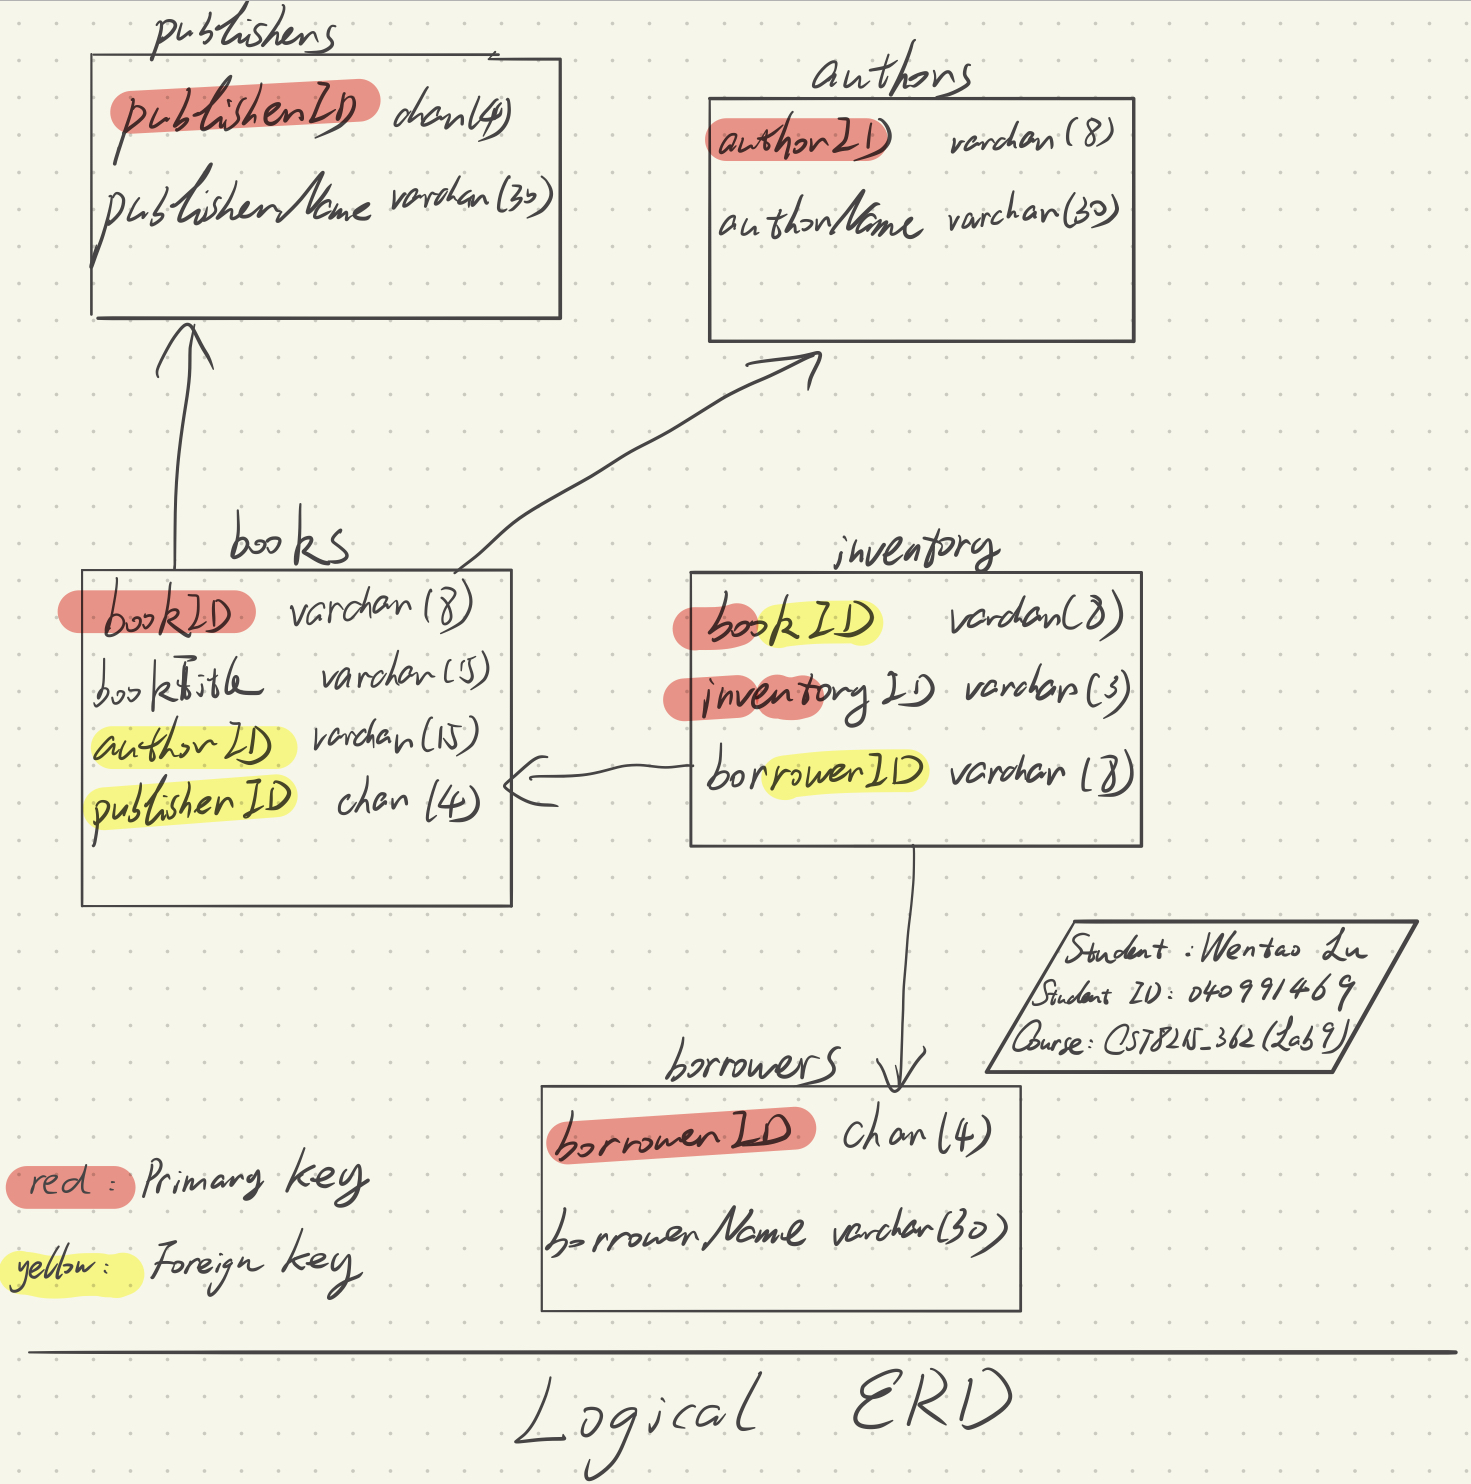 publishers
publisherID char(4)
publisherName varchar(30)
authors
authorID varchar(8)
authorName varchar(30)
books
bookID varchar(8)
bookTitle varchar(15)
authorID varchar(15)
publisherID char(4)
inventory
bookID varchar(8)
inventoryID varchar(3)
borrowerID varchar(8)
Student: Wentao Lu
Student ID: 040991469
Course: CST8215_362 (Lab9)
borrowers
borrowerID char(4)
borrowerName varchar(30)
red: Primary key
yellow: Foreign key
Logical ERD